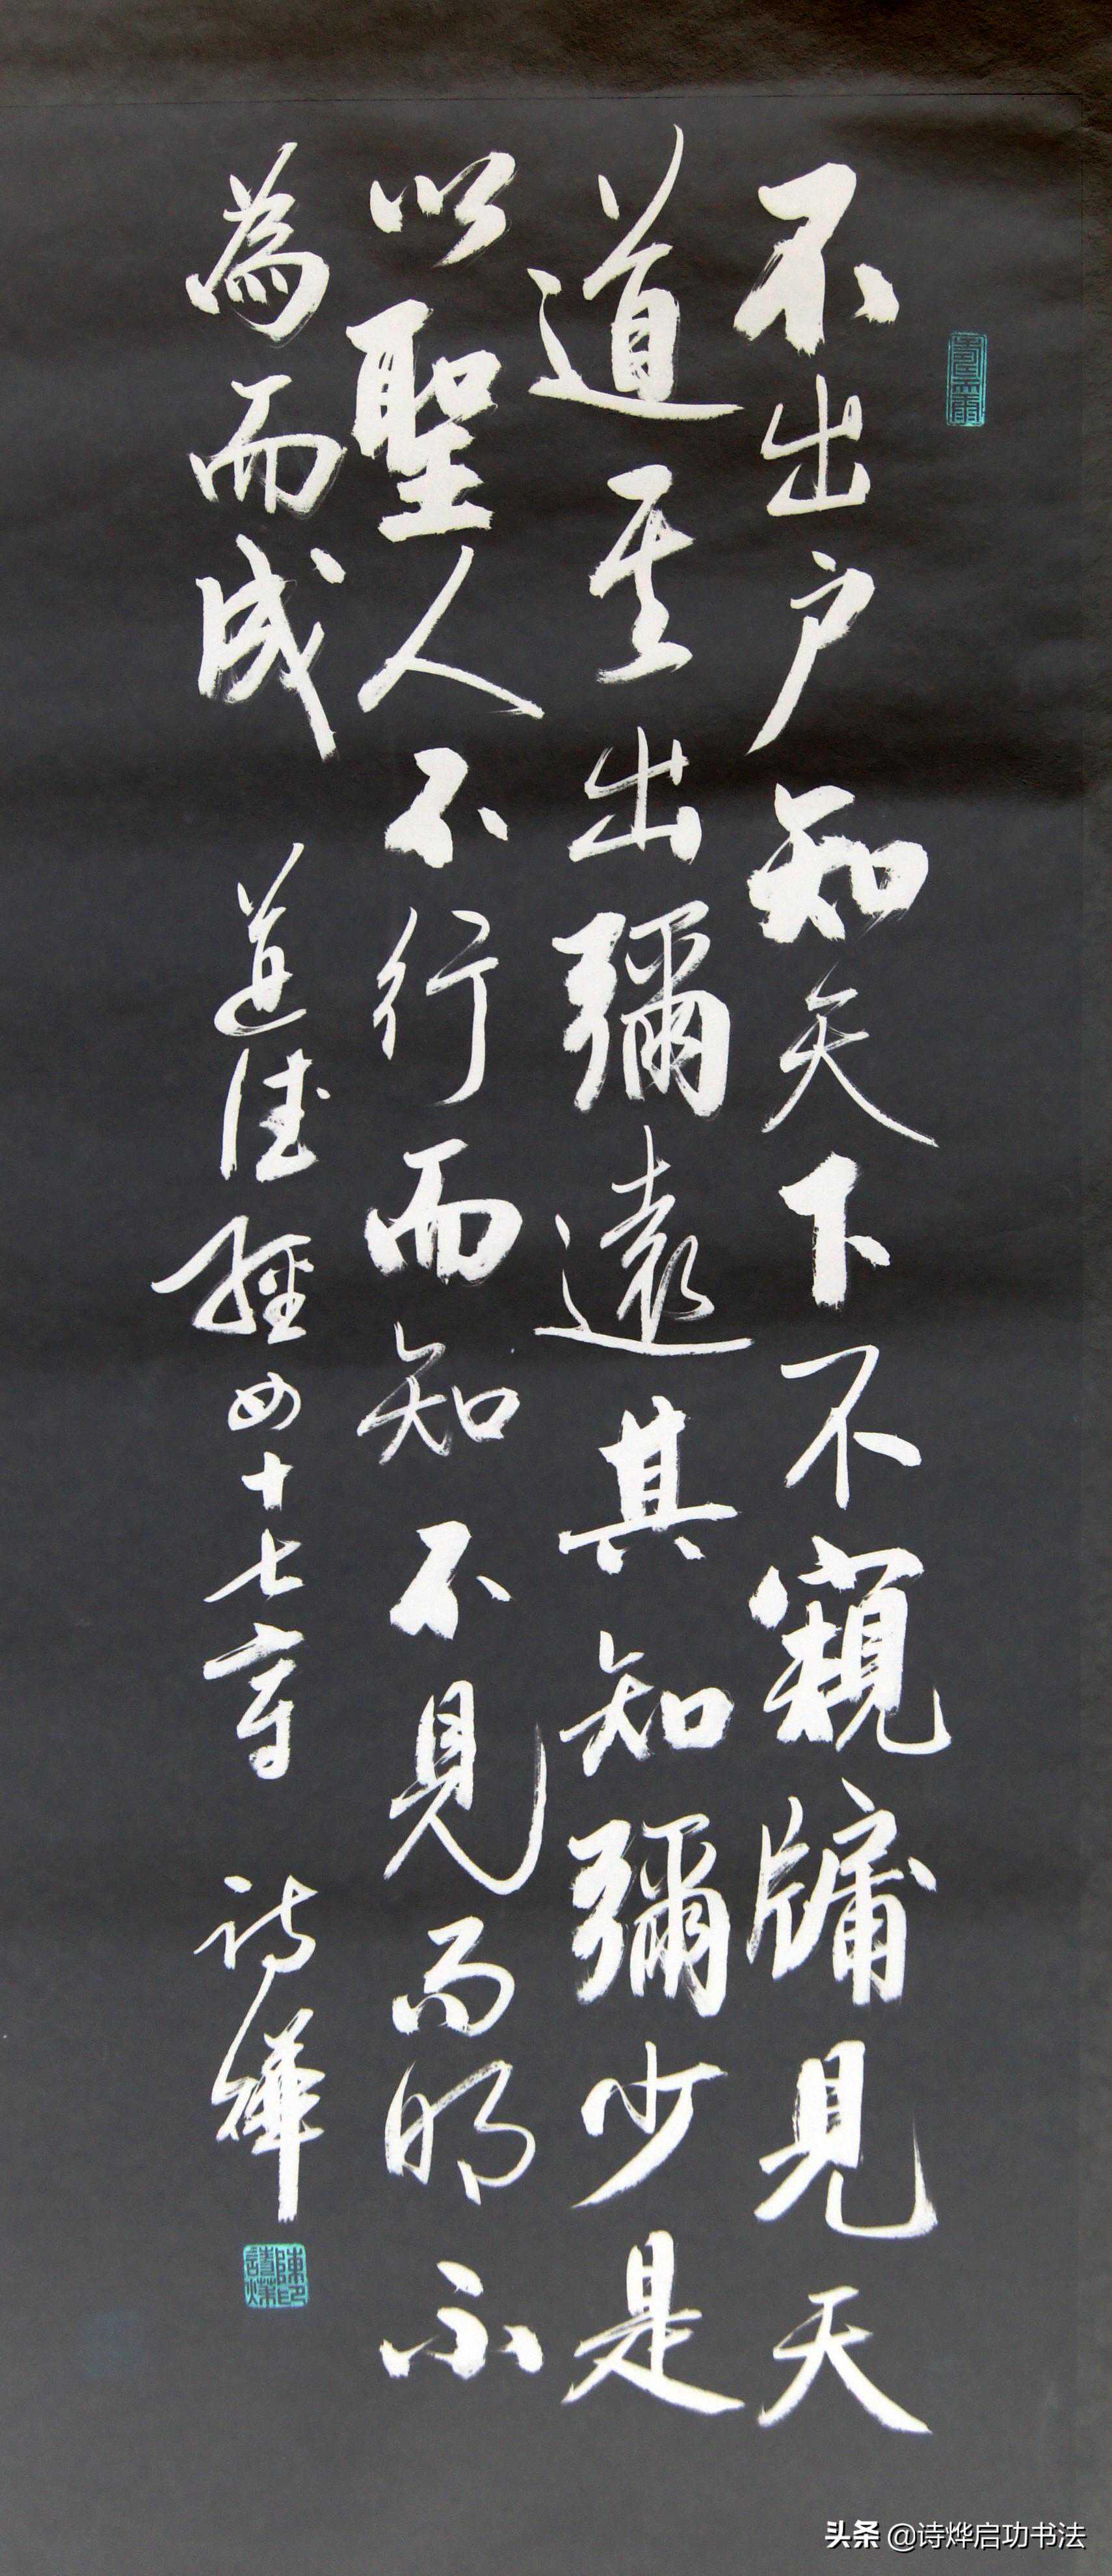 不出户知天下不窺牖見天
道其出彌遠其知彌少是
以聖人不行而知不見而明不
為而成
道德經四十七章
詩燁
陳印詩燁
头条 @诗烨启功书法